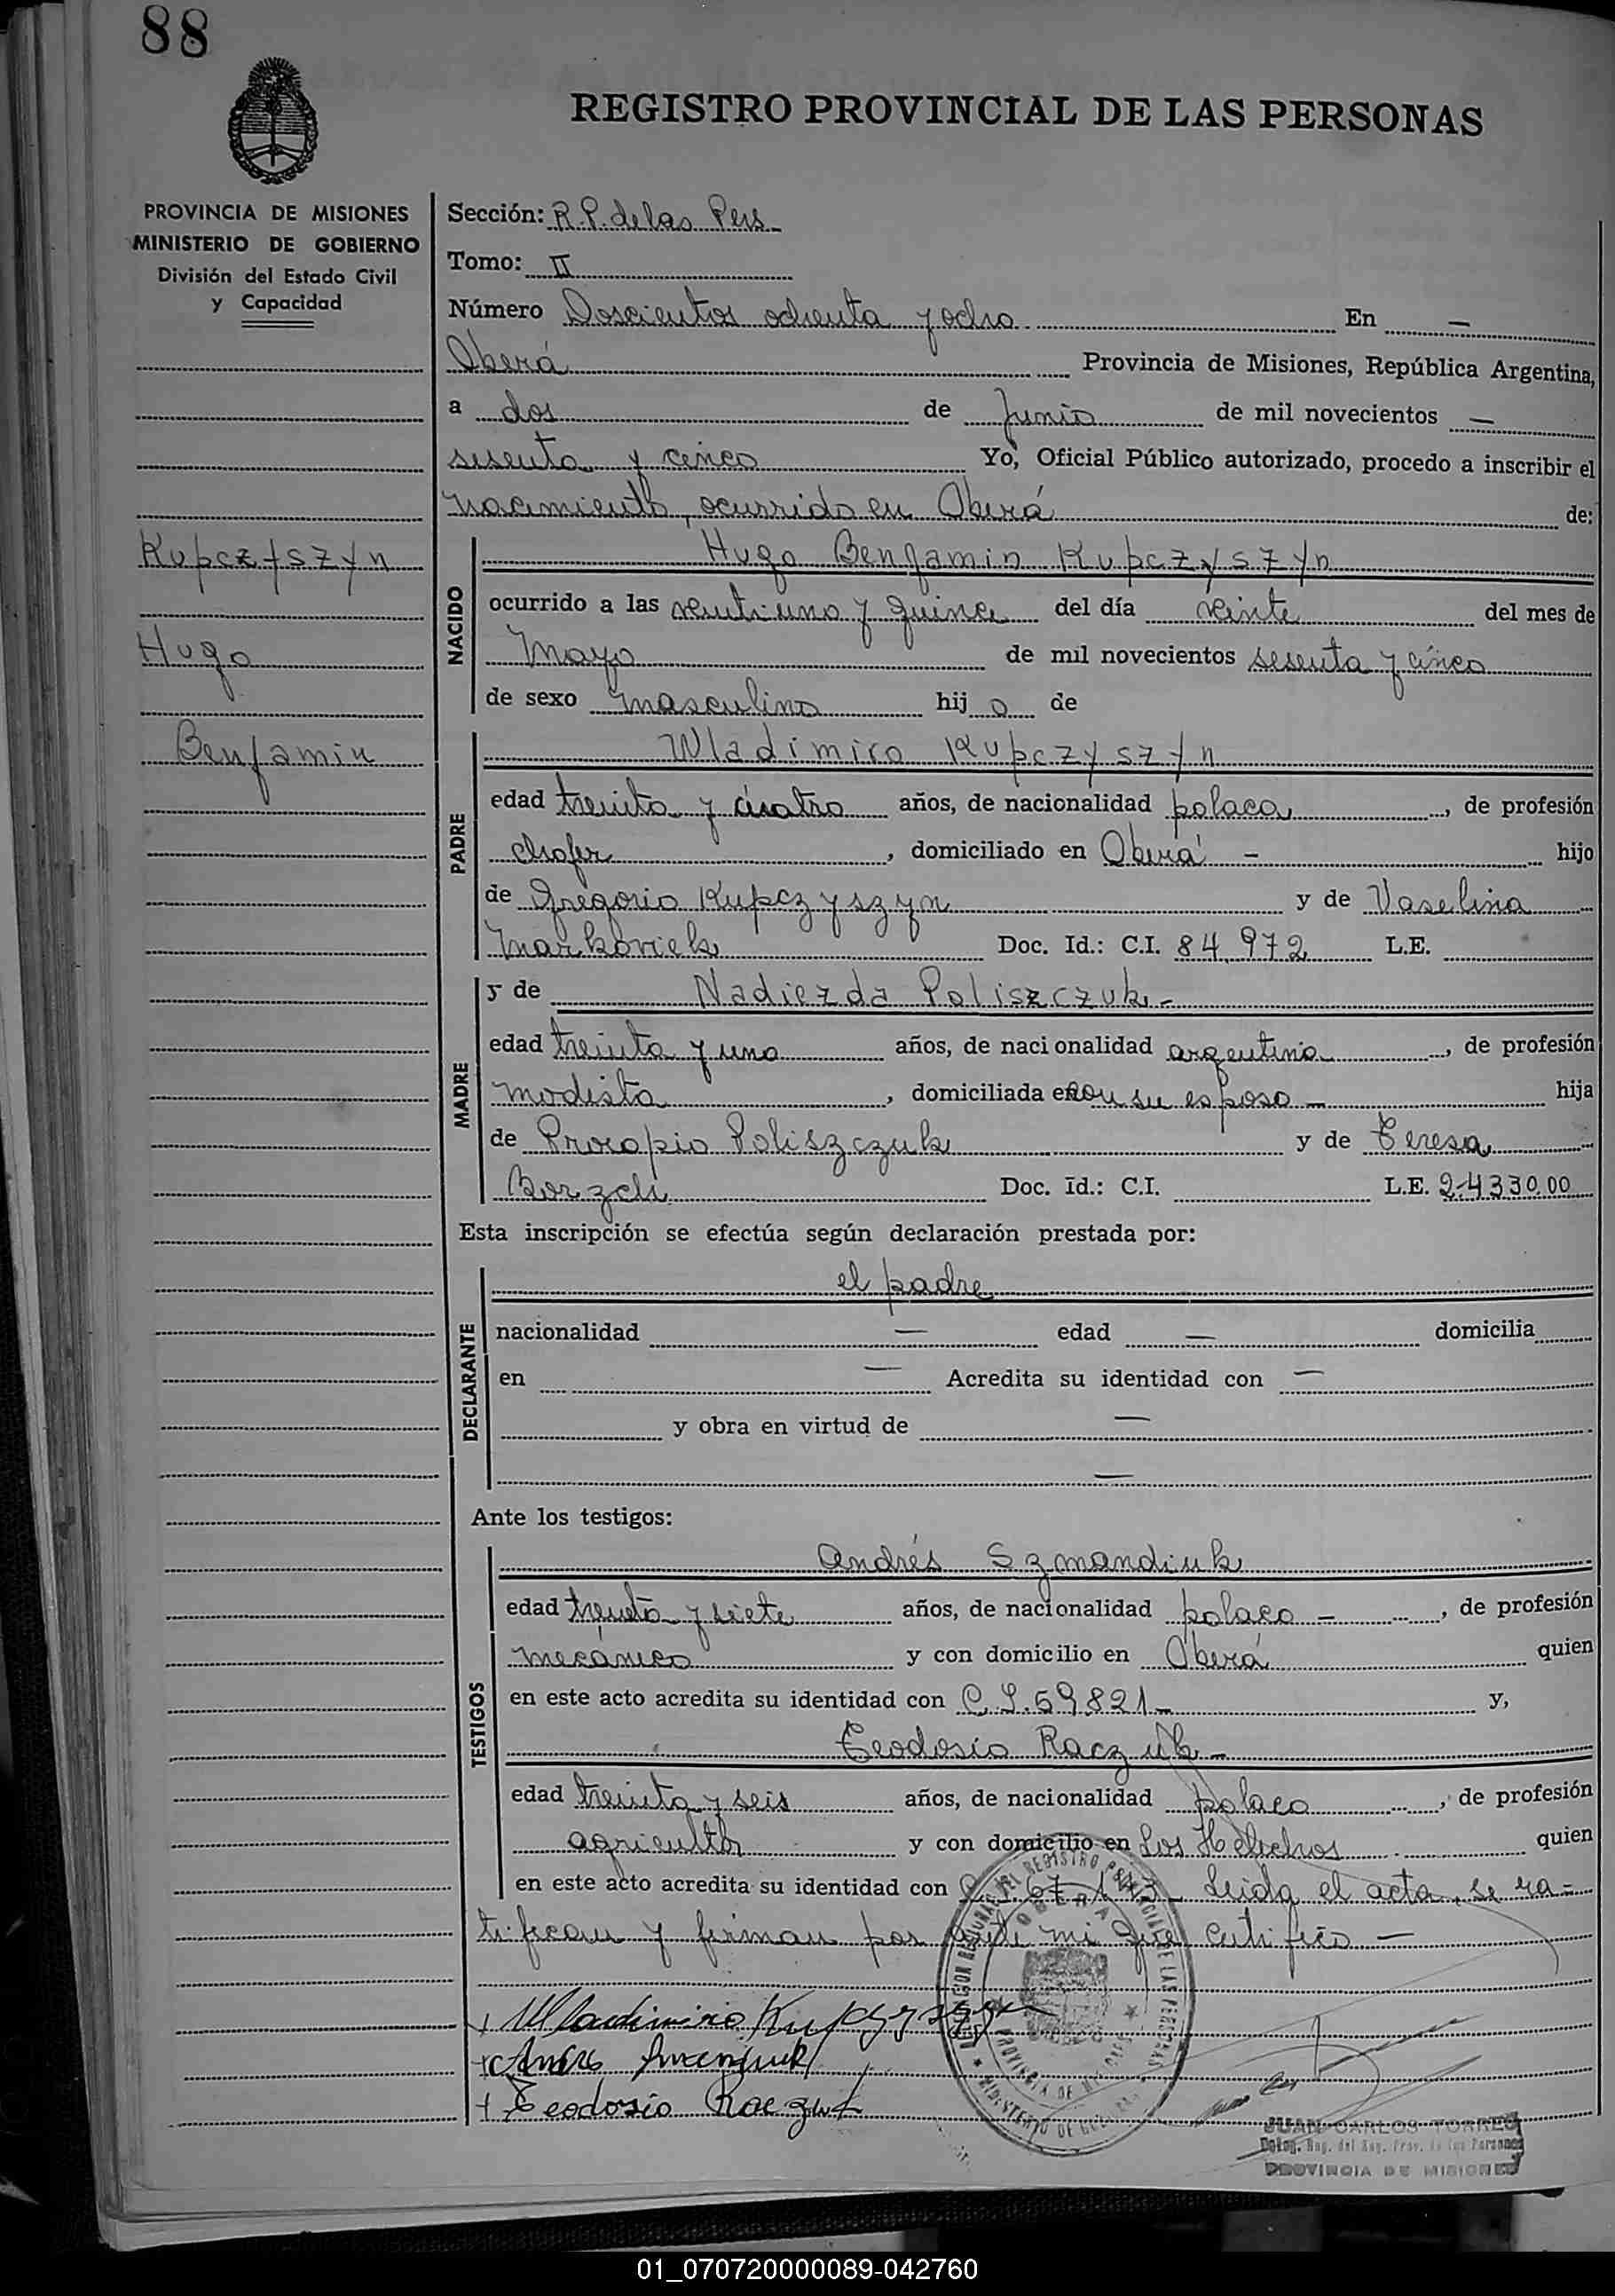 88
REGISTRO PROVINCIAL DE LAS PERSONAS
PROVINCIA DE MISIONES
MINISTERIO DE GOBIERNO
División del Estado Civil
y Capacidad
Kupczyszyn
Hugo
Benjamin
Sección: R.P. de las Pers.
Tomo: II
Número Doscientos ochenta y ocho En —
Oberá Provincia de Misiones, República Argentina,
a dos de Junio de mil novecientos —
sesenta y cinco Yo, Oficial Público autorizado, procedo a inscribir el
nacimiento, ocurrido en Oberá de:
NACIDO
Hugo Benjamin Kupczyszyn
ocurrido a las veinti uno y quince del día veinte del mes de
Mayo de mil novecientos sesenta y cinco
de sexo masculino hij o de
PADRE
Wladimiro Kupczyszyn
edad treinta y cuatro años, de nacionalidad polaca, de profesión
chofer, domiciliado en Oberá - hijo
de Gregorio Kupczyszyn y de Vaselina
Markoviek Doc. Id.: C.I. 84.972 L.E.
MADRE
y de Nadiezda Poliszczuk -
edad treinta y uno años, de nacionalidad argentina, de profesión
modista, domiciliada en con su esposo - hija
de Procopio Poliszczuk y de Teresa
Doc. Id.: C.I. L.E. 2.433.000
Esta inscripción se efectúa según declaración prestada por:
DECLARANTE
el padre
nacionalidad — edad — domicilia
en — Acredita su identidad con —
y obra en virtud de —
—
Ante los testigos:
TESTIGOS
Andrés Szmandiuk
edad treinta y siete años, de nacionalidad polaco -, de profesión
mecánico y con domicilio en Oberá quien
en este acto acredita su identidad con C.I. 59.821 - y,
Teodosio Raczuk -
edad treinta y seis años, de nacionalidad polaco, de profesión
agricultor y con domicilio en Los Helechos quien
en este acto acredita su identidad con Leida el acta, se ra-
tifican y firman por ante mi que certifico —
Wladimiro Kupczyszyn
Andrés
Teodosio Raczuk
JUAN CARLOS TORRES
PROVINCIA DE MISIONES
01_070720000089-042760